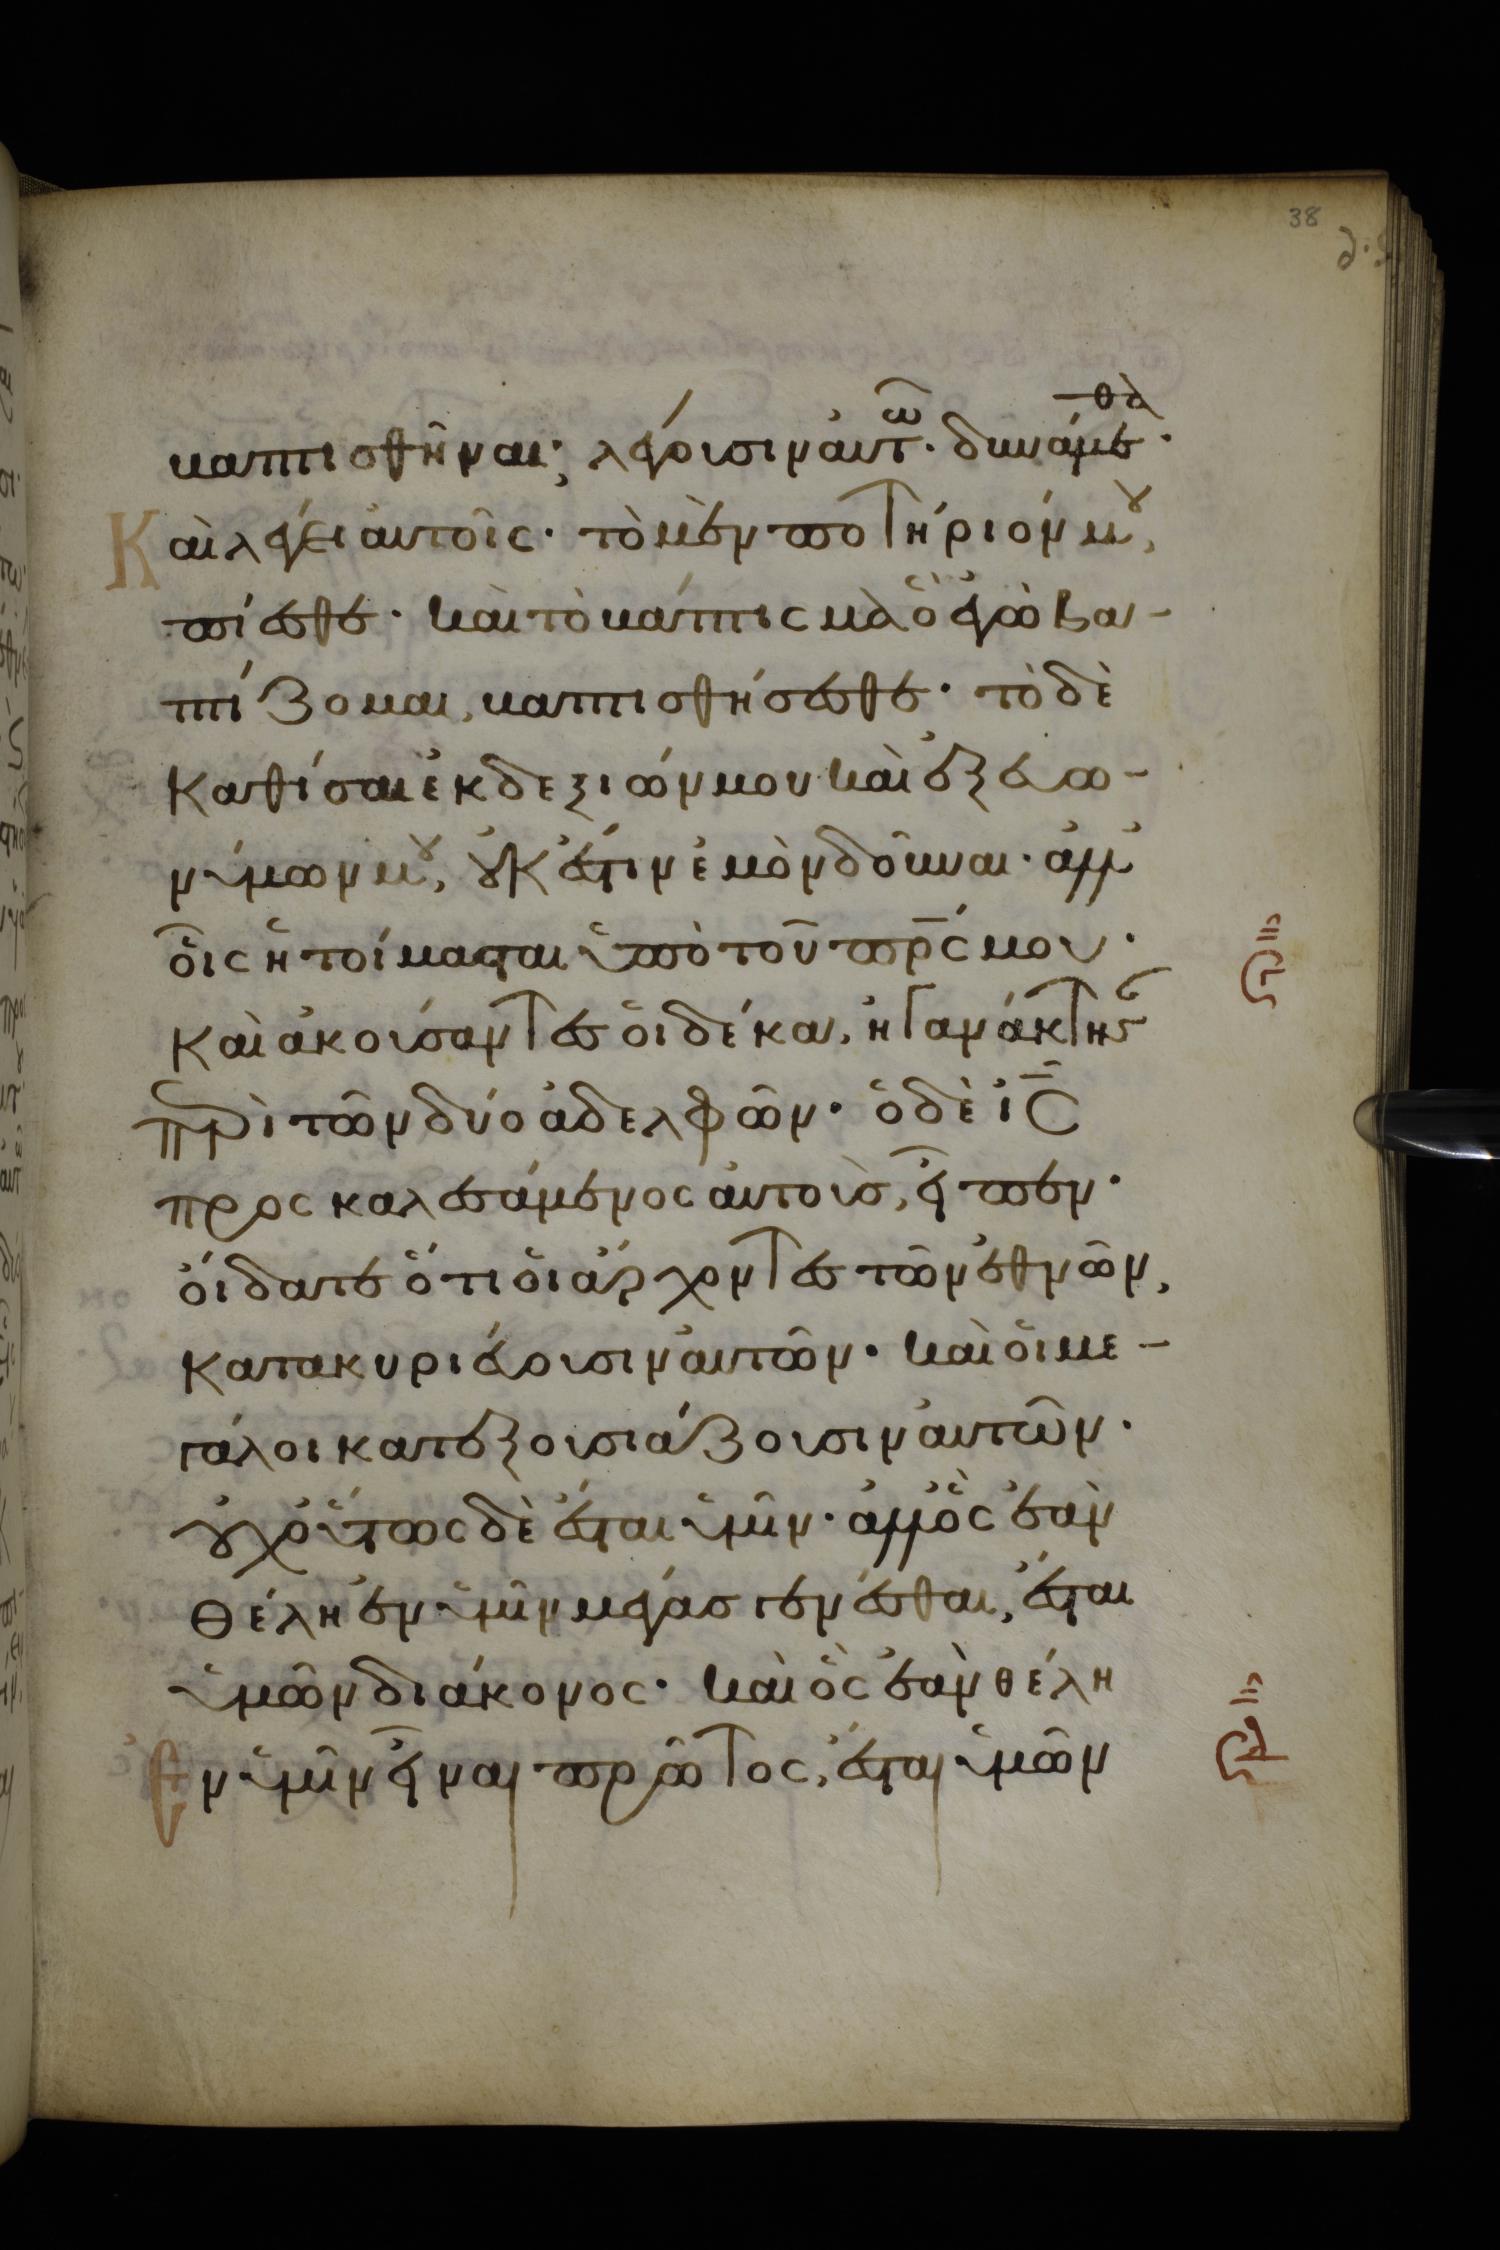 38
βαπτισθῆναι; λέγουσιν αὐτῶ· δυνάμεθα·
Καὶ λέγει αὐτοῖς· τὸ μὲν ποτήριόν μου,
πίεσθε· καὶ τὸ βάπτισμα ὃ ἐγὼ βα-
πτίζομαι, βαπτισθήσεσθε· τὸ δὲ
καθίσαι ἐκ δεξιῶν μου καὶ ἐξ εὐω-
νύμων μου, οὐκ ἔστιν ἐμὸν δοῦναι· ἀλλ'
οἷς ἡτοίμασται ὑπὸ τοῦ πρς μου·
Καὶ ἀκούσαντες οἱ δέκα, ἠγανάκτησαν
περὶ τῶν δύο ἀδελφῶν· ὁ δὲ ις
προσκαλεσάμενος αὐτοὺς, εἶπεν·
οἴδατε ὅτι οἱ ἄρχοντες τῶν ἐθνῶν,
κατακυριεύουσιν αὐτῶν· καὶ οἱ με-
γάλοι κατεξουσιάζουσιν αὐτῶν·
οὐχ οὕτως δὲ ἔσται ὑμῖν· ἀλλ' ὃς ἐὰν
θέλη ἐν ὑμῖν μέγας γενέσθαι, ἔσται
ὑμῶν διάκονος· καὶ ὃς ἐὰν θέλη
ἐν ὑμῖν εἶναι πρῶτος, ἔσται ὑμῶν